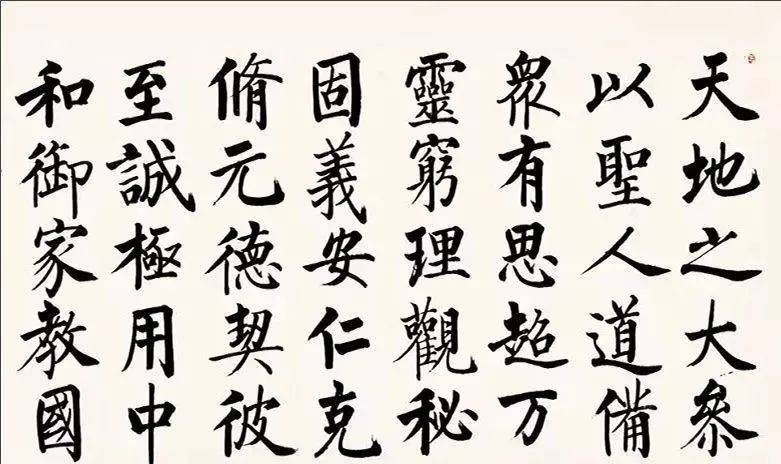 天地之大參
以聖人道備
眾有思超万
靈窮理觀秘
固義安仁克
脩元德契彼
至誠極用中
和御家教國